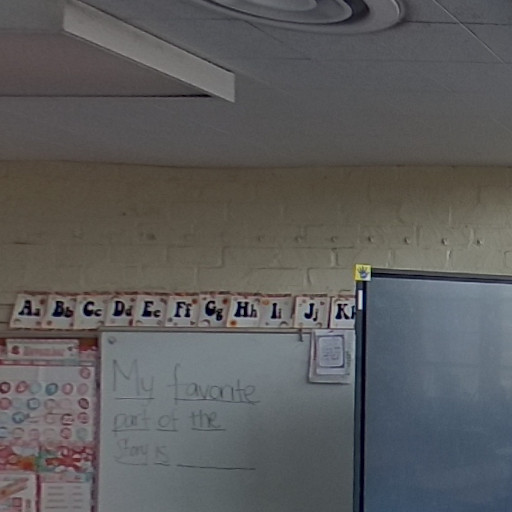 Aa Bb Cc Dd Ee Ff Gg Hh Ii Jj K
My favorite
part of the
story is ________